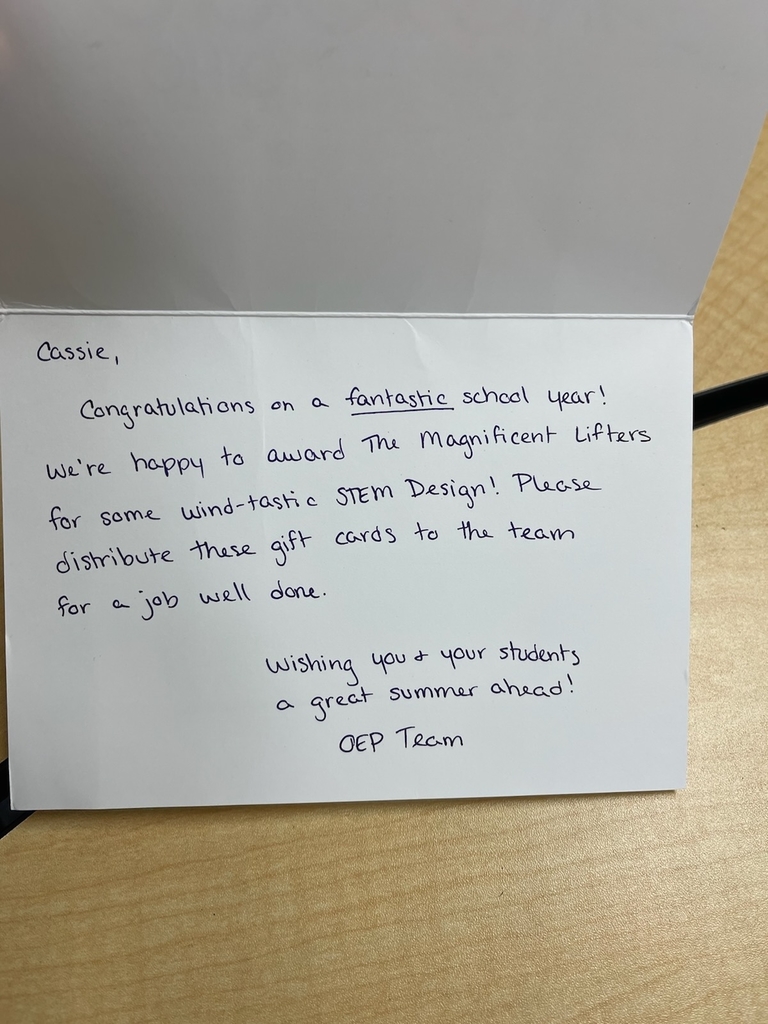 Cassie,
Congratulations on a fantastic school year!
We're happy to award The Magnificent Lifters
for some wind-tastic STEM Design! Please
distribute these gift cards to the team
for a job well done.
Wishing you & your students
a great summer ahead!
OEP Team